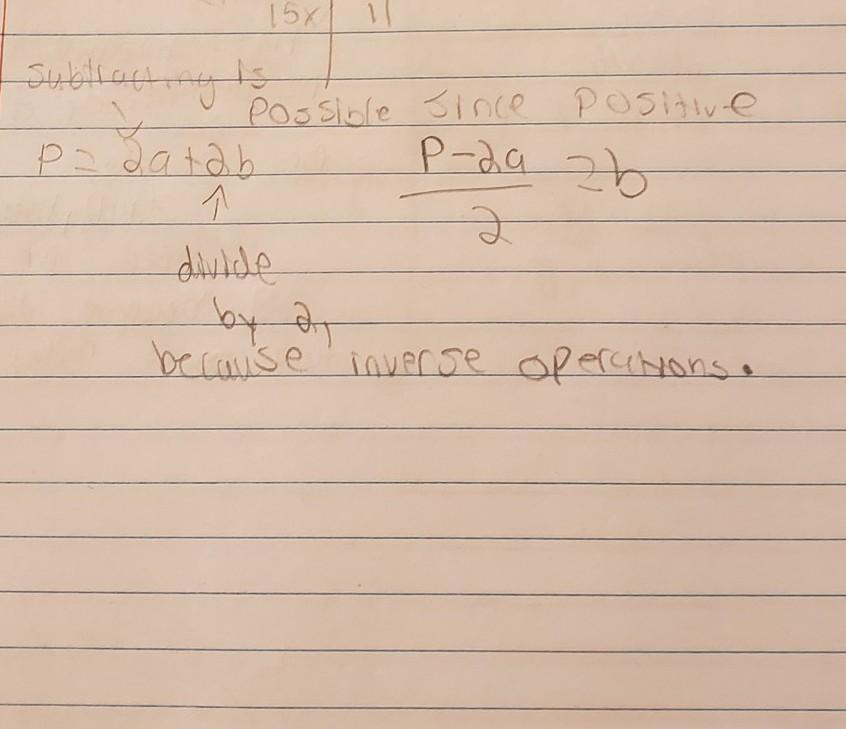 15x 11
Subtracting is
possible since positive
P = 2a + 2b
P - 2a = b
2
divide
by 2,
because inverse operations.